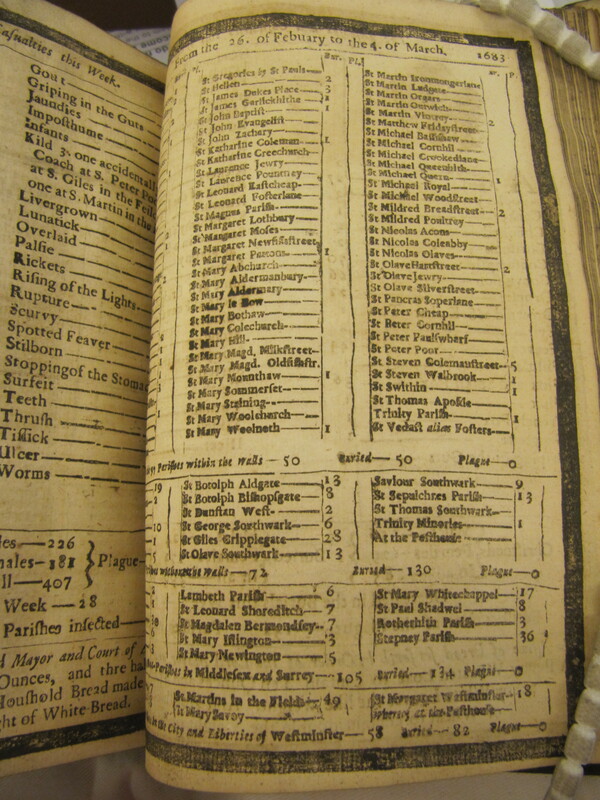 Casualties this Week.
Gout
Griping in the Guts
Jaundies
Imposthume
Infants
Kild 3. one accidentall
Coach at S. Peter
at S. Giles in the Feil
one at S. Martin in the
Livergrown
Lunatick
Overlaid
Palsie
Rickets
Rising of the Lights
Rupture
Scurvy
Spotted Feaver
Stilborn
Stopping of the Stoma
Surfeit
Teeth
Thrush
Tissick
Ulcer
Worms
les — 226
males — 181 } Plague
ll — 407
Week — 28
Parishes infected
Mayor and Court of
Ounces, and three ha
Houshold Bread made
ght of White Bread.
From the 26. of Febuary to the 4. of March. 1683
Bur. Pl.
St Gregories by St Pauls — 2
St Hellen — 2
St James Dukes Place — 3
St James Garlickhithe — 1
St John Baptist
St John Evangelist
St John Zachary
St Katharine Coleman — 1
St Katharine Creechurch
St Laurence Jewry
St Laurence Pountney
St Leonard Eastcheap
St Leonard Fosterlane
St Magnus Parish
St Margaret Lothbury
St Margaret Moses
St Margaret Newfishstreet
St Margaret Pattons — 1
St Mary Abchurch
St Mary Aldermanbury
St Mary Aldermary
St Mary le Bow
St Mary Bothaw
St Mary Colechurch
St Mary Hill
St Mary Magd. Milkstreet
St Mary Magd. Oldfishstr.
St Mary Mounthaw — 1
St Mary Sommerset
St Mary Staining
St Mary Woolchurch
St Mary Woolnoth — 1
St Martin Ironmongerlane
St Martin Ludgate
St Martin Orgars
St Martin Outwich
St Martin Vintrey — 2
St Matthew Fridaystreet
St Michael Bassishaw
St Michael Cornhil
St Michael Crookedlane
St Michael Queenhith
St Michael Quern — 1
St Michael Royal
St Michael Woodstreet
St Mildred Breadstreet — 2
St Mildred Poultrey
St Nicolas Acons
St Nicolas Coleabby
St Nicolas Olaves
St Olave Hartstreet — 2
St Olave Jewry
St Olave Silverstreet
St Pancras Soperlane
St Peter Cheap
St Peter Cornhil
St Peter Paulswharf
St Peter Poor
St Steven Colemanstreet — 5
St Steven Walbrook — 1
St Swithin — 1
St Thomas Apostle
Trinity Parish — 1
St Vedast alias Fosters
Parishes within the Walls — 50 Buried — 50 Plague — 0
St Botolph Aldgate — 13
St Botolph Bishopsgate — 8
St Dunstan West — 2
St George Southwark — 6
St Giles Cripplegate — 28
St Olave Southwark — 13
Saviour Southwark — 9
St Sepulchres Parish — 13
St Thomas Southwark
Trinity Minories — 1
At the Pesthouse
without the Walls — 72 Buried — 130 Plague — 0
Lambeth Parish — 6
St Leonard Shoreditch — 7
St Magdalen Bermondsey — 7
St Mary Islington — 3
St Mary Newington — 5
St Mary Whitechappel — 17
St Paul Shadwel — 8
Rotherhith Parish — 3
Stepney Parish — 36
Parishes in Middlesex and Surrey — 105 Buried — 134 Plague — 0
St Martins in the Fields — 49
St Mary Savoy
St Margaret Westminster — 18
whereof at the Pesthouse
in the City and Liberties of Westminster — 58 Buried — 82 Plague — 0